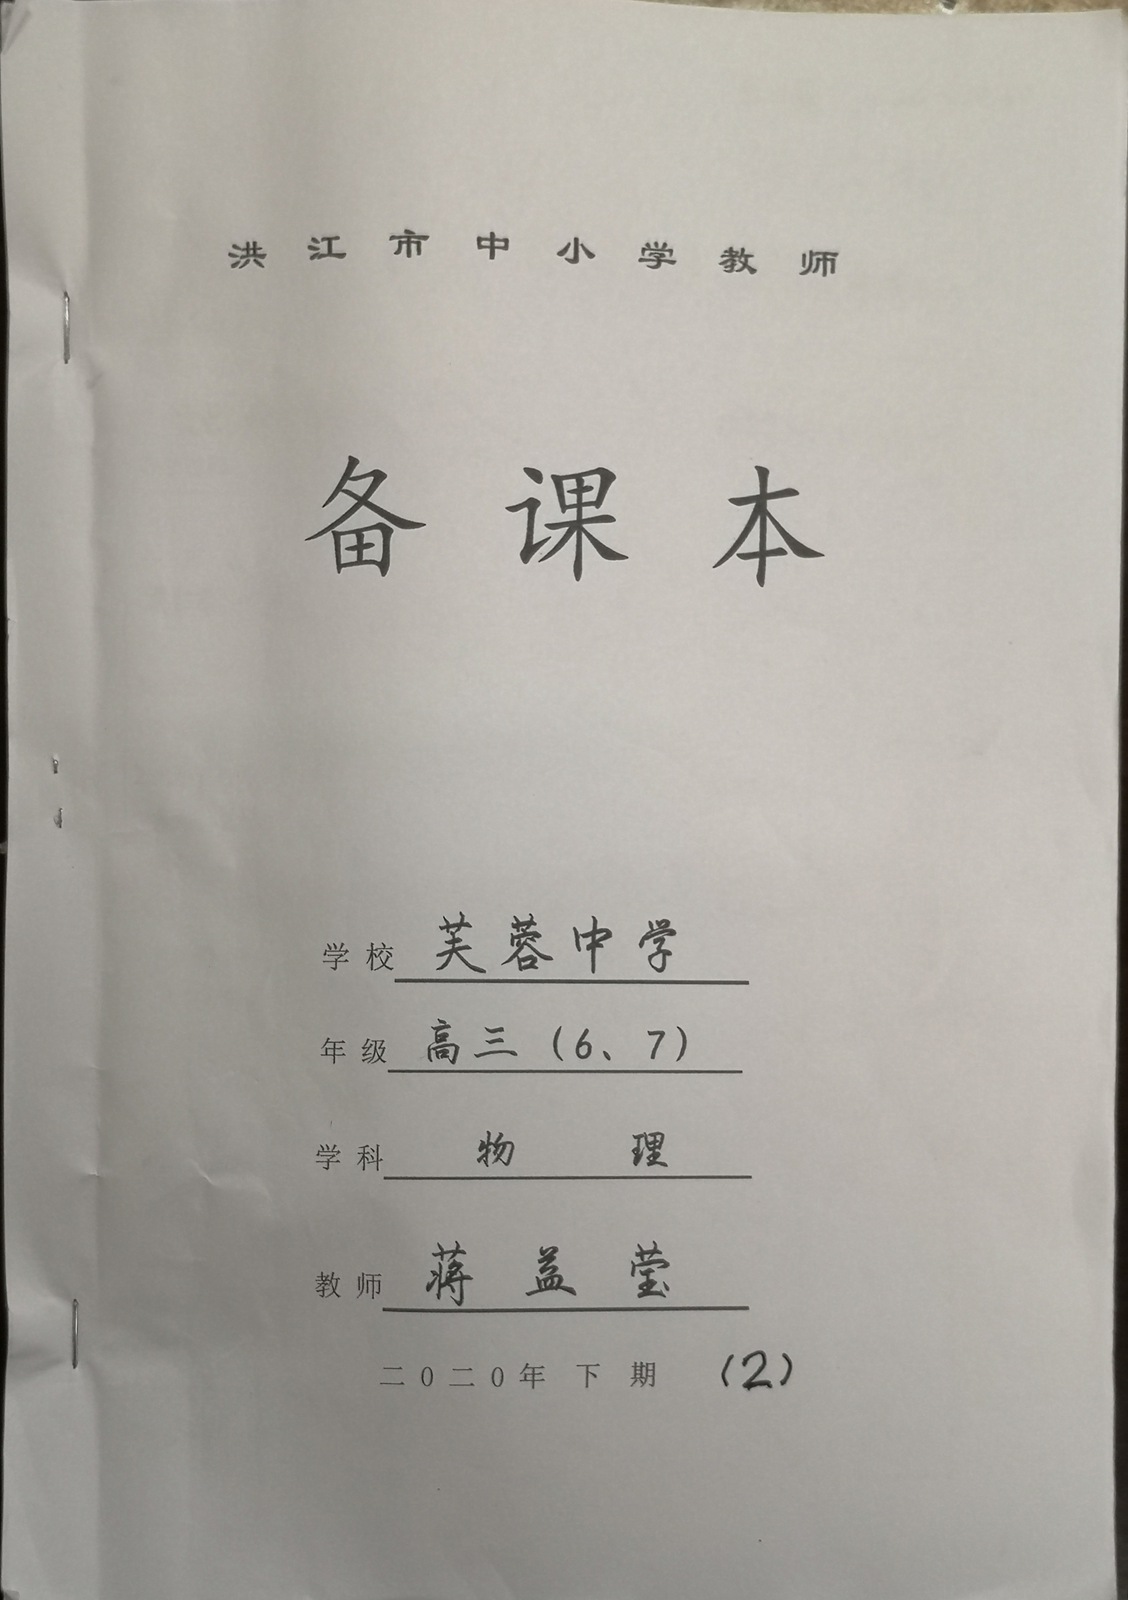 洪江市中小学教师
备课本
学校 芙蓉中学
年级 高三（6、7）
学科 物理
教师 蒋益莹
二0二0年下期 （2）